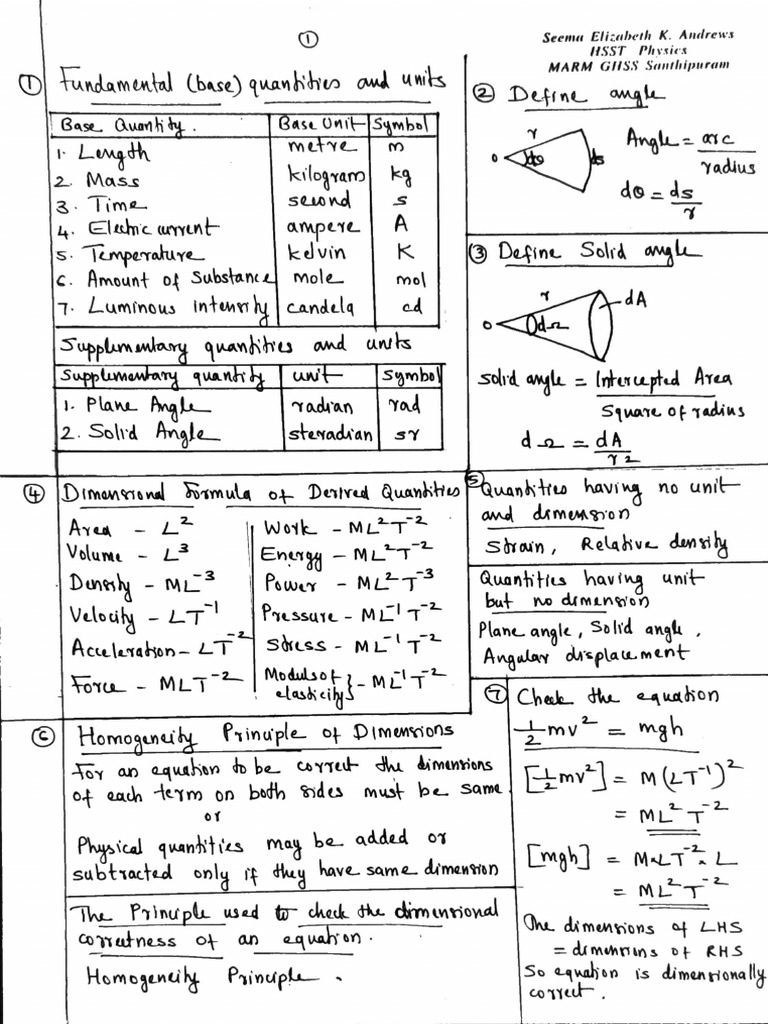 ①
Seema Elizabeth K. Andrews
HSST Physics
MARM GHSS Santhipuram
① Fundamental (base) quantities and units
Base Quantity. Base Unit Symbol
1. Length metre m
2. Mass kilogram kg
3. Time second s
4. Electric current ampere A
5. Temperature kelvin K
6. Amount of Substance mole mol
7. Luminous intensity candela cd
Supplementary quantities and units
Supplementary quantity unit Symbol
1. Plane Angle radian rad
2. Solid Angle steradian sr
② Define angle
r
o dθ ds
Angle = arc / radius
dθ = ds / r
③ Define Solid angle
r dA
o dΩ
Solid angle = Intercepted Area / Square of radius
dΩ = dA / r2
④ Dimensional Formula of Derived Quantities
Area - L²
Volume - L³
Density - ML⁻³
Velocity - LT⁻¹
Acceleration - LT⁻²
Force - MLT⁻²
Work - ML²T⁻²
Energy - ML²T⁻²
Power - ML²T⁻³
Pressure - ML⁻¹T⁻²
Stress - ML⁻¹T⁻²
Moduls of
elasticity } - ML⁻¹T⁻²
⑤ Quantities having no unit
and dimension
Strain, Relative density
Quantities having unit
but no dimension
Plane angle, Solid angle,
Angular displacement
⑥ Homogeneity Principle of Dimensions
For an equation to be correct the dimensions
of each term on both sides must be same
or
Physical quantities may be added or
subtracted only if they have same dimension
The Principle used to check the dimensional
correctness of an equation.
Homogeneity Principle.
⑦ Check the equation
1/2 mv² = mgh
[1/2 mv²] = M(LT⁻¹)²
= ML²T⁻²
[mgh] = M.LT⁻².L
= ML²T⁻²
The dimensions of LHS
= dimensions of RHS
So equation is dimensionally
correct.